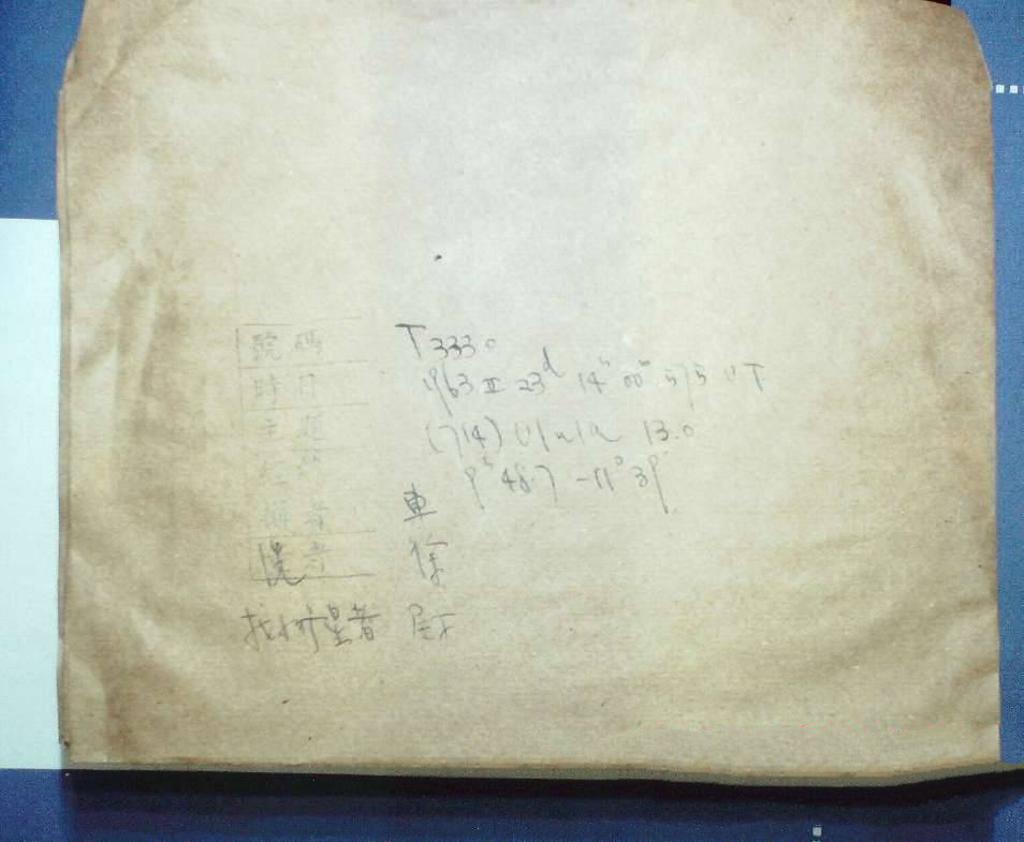 號碼 T3330
時日 1963 III 23ᵈ 14ʰ 00ᵐ.575 UT
主題 (714) Ulula 13.0
9ʰ 48.7 -11° 39'
攝者 車
洗者 徐
找小行星者